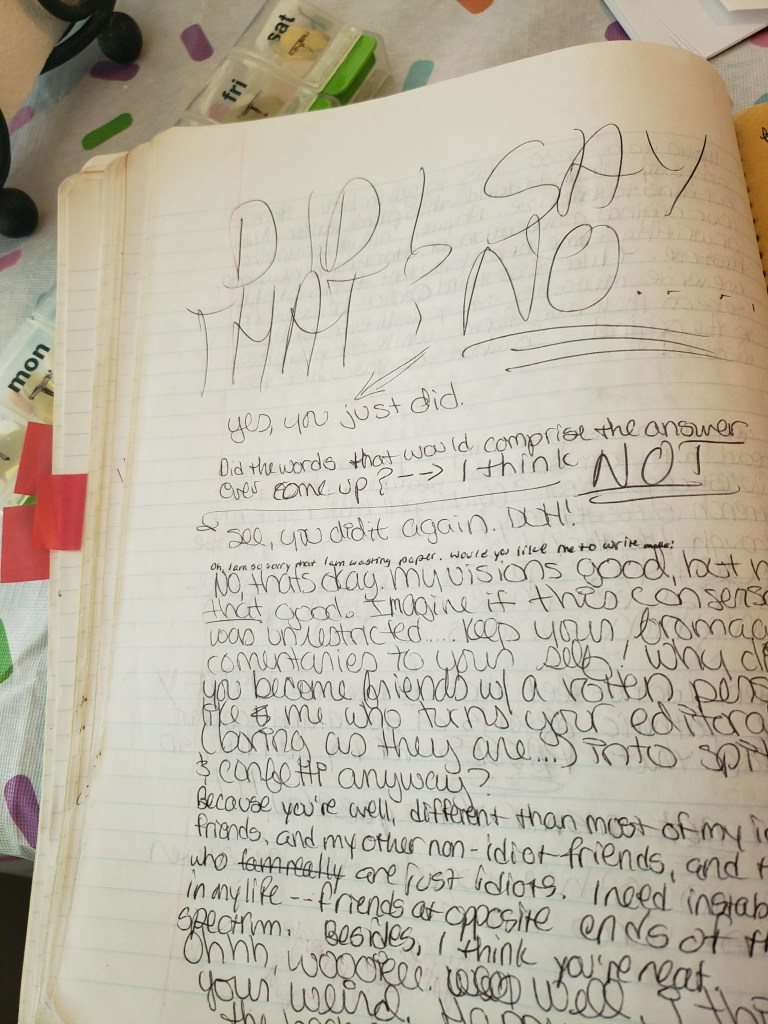 sat
fri
mon
DID I SAY
THAT? NO.....
yes, you just did.
Did the words that would comprise the answer
ever come up? --> I think NOT
& see, you did it again. DUH!
Oh, I am so sorry that I am wasting paper. Would you like me to write more?
No, thats okay. my visions good, but n
that good. Imagine if this consens
was unrestricted.... keep your
comentaries to your self! Why di
you become friends w/ a rotten pers
like me who turns your editora
(boring as they are...) into spit
& confetti anyway?
Because you're well, different than most of my i
friends, and my other non-idiot-friends, and t
who are just idiots. I need instab
in my life -- friends at opposite ends of th
spectrim. Besides, I think you're neat.
Ohhh, woookee. Well, I thi
your weird.